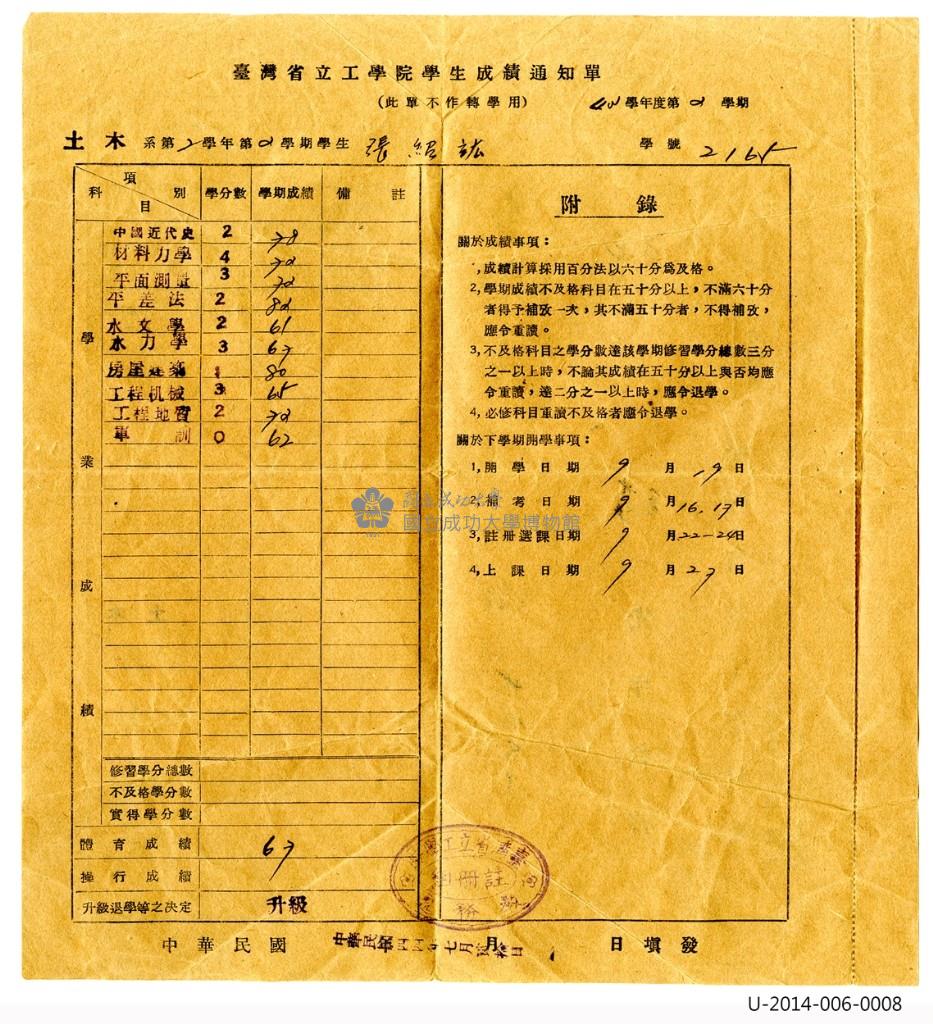 臺灣省立工學院學生成績通知單
(此單不作轉學用) 學年度第2學期
土木系第2學年第2學期學生 張紹 學號 2165
項 別 科 目 學分數 學期成績 備註
學業成績
中國近代史 2 78
材料力學 4 72
平面測量 3 72
平差法 2 82
水文學 2 61
水力學 3 67
房屋建築 1 80
工程机械 3 65
工程地質 2 72
軍訓 0 62
修習學分總數
不及格學分數
實得學分數
體育成績 67
操行成績
升級退學等之決定 升級
附錄
關於成績事項:
1,成績計算採用百分法以六十分爲及格。
2,學期成績不及格科目在五十分以上,不滿六十分
者得予補攷一次,其不滿五十分者,不得補攷,
應令重讀。
3,不及格科目之學分數達該學期修習學分總數三分
之一以上時,不論其成績在五十分以上與否均應
令重讀,達二分之一以上時,應令退學。
4,必修科目重讀不及格者應令退學。
關於下學期開學事項:
1,開學日期 9月19日
2,補考日期 9月16.17日
3,註册選課日期 9月22-24日
4,上課日期 9月27日
國立成功大學
國立成功大學博物館
中華民國 年 月 日填發
U-2014-006-0008